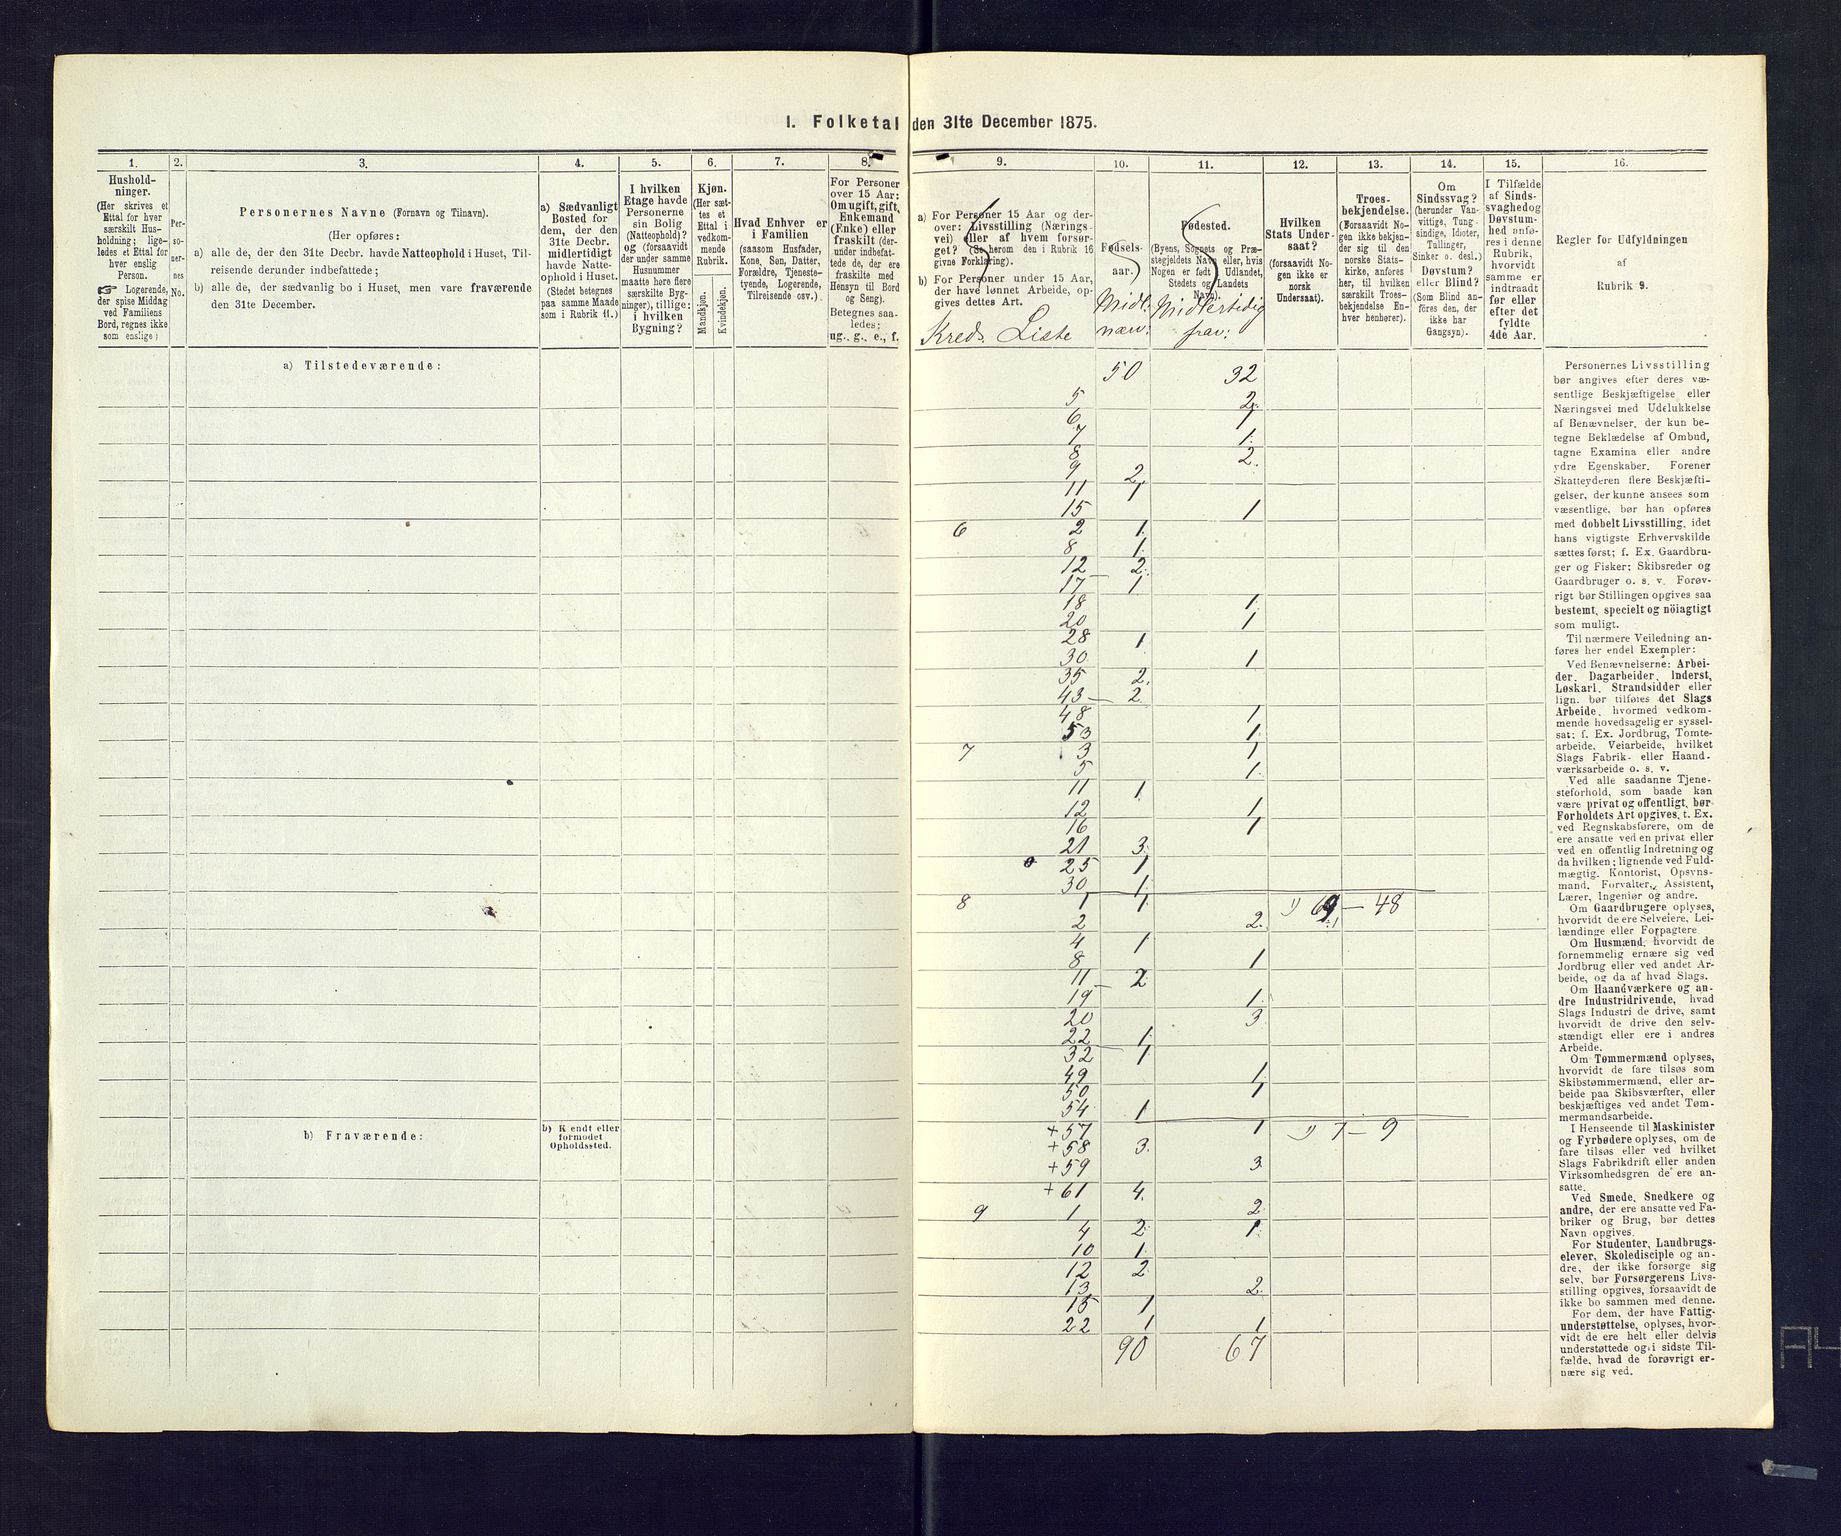 I. Folketal den 31te December 1875.
1. 2. 3. 4. 5. 6. 7. 8. 9. 10. 11. 12. 13. 14. 15. 16.
Hushold-
ninger.
(Her skrives et
Ettal for hver
særskilt Hus-
holdning; lige-
ledes et Ettal for
hver enslig
Person.
☞ Logerende,
der spise Middag
ved Familiens
Bord, regnes ikke
som enslige)
Per-
so-
ner-
nes
No.
Personernes Navne (Fornavn og Tilnavn).
(Her opføres:
a) alle de, der den 31te Decbr. havde Natteophold i Huset, Til-
reisende derunder indbefattede;
b) alle de, der sædvanlig bo i Huset, men vare fraværende
den 31te December.
a) Sædvanligt
Bosted for
dem, der den
31te Decbr.
midlertidigt
havde Natte-
ophold i Huset.
(Stedet betegnes
paa samme Maade
som i Rubrik 11.)
I hvilken
Etage havde
Personerne
sin Bolig
(Natteophold)?
og (forsaavidt
der under samme
Husnummer
maatte høre flere
særskilte Byg-
ninger), tillige:
i hvilken
Bygning?
Kjøn.
(Her sæt-
tes et
Ettal i
vedkom-
mende
Rubrik.
Mandkjøn.
Kvindekjøn.
Hvad Enhver er
i Familien
(saasom Husfader,
Kone, Søn, Datter,
Forældre, Tjeneste-
tyende, Logerende,
Tilreisende osv.)
For Personer
over 15 Aar:
Om ugift, gift,
Enkemand
(Enke) eller
fraskilt (der-
under indbefat-
tede de, der ere
fraskilte med
Hensyn til Bord
og Seng).
Betegnes saa-
ledes:
ug., g., e., f.
a) For Personer 15 Aar og der-
over: Livsstilling (Nærings-
vei) eller af hvem forsør-
get? (Se herom den i Rubrik 16
givne Forklaring).
b) For Personer under 15 Aar,
der have lønnet Arbeide, op-
gives dettes Art.
Kreds. Liste
Fødsels-
aar.
Midl.
nærv:
Fødested.
(Byens, Sognets og Præ-
stegjeldets Navn eller, hvis
Nogen er født i Udlandet,
Stedets og Landets
Navn).
Midlertidig
frav:
Hvilken
Stats Under-
saat?
(forsaavidt No-
gen ikke er
norsk
Undersaat).
Troes-
bekjendelse.
(Forsaavidt No-
gen ikke bekjen-
der sig til den
norske Stats-
kirke, anføres
her, til hvilken
særskilt Troes-
bekjendelse En-
hver henhører).
Om
Sindssvag?
(herunder Van-
vittige, Tung-
sindige, Idioter,
Tullinger,
Sinker o. desl.)
Døvstum?
eller Blind?
(Som Blind an-
føres den, der
ikke har
Gangsyn).
I Tilfælde
af Sinds-
svaghed og
Døvstum-
hed anfø-
res i denne
Rubrik,
hvorvidt
samme er
indtraadt
før eller
efter det
fyldte
4de Aar.
Regler for Udfyldningen
af
Rubrik 9.
a) Tilstedeværende:
50 32
5 2.
6 1
7 1.
8 2.
9 2.
11 1
15 1
6 2 1.
8 1.
12 2.
17 — 1
18 1.
20 1
28 1
30 1
35 2.
43 — 2.
48 1
53 1.
7 3 1
5 1.
11 1.
12 1
16 1
21 3.
25 1
30 1.
8 1 1 69 — 48
2 2.
4 1
8 1
11 2
19 — 1.
20 3.
22 1.
32 — 1
49 1.
50 1
54 1
b) Fraværende:
b) Kjendt eller
formodet
Opholdssted.
+ 57 1 7 — 9
+ 58 3.
+ 59 3.
+ 61 4.
9 1 2.
4 2. 1.
10 1.
12 2.
13 2.
15 1
22 1 1
90 67
Personernes Livsstilling
bør angives efter deres væ-
sentlige Beskjæftigelse eller
Næringsvei med Udelukkelse
af Benævnelser, der kun be-
tegne Beklædelse af Ombud,
tagne Examina eller andre
ydre Egenskaber. Forener
Skatteyderen flere Beskjæfti-
gelser, der kunne ansees som
væsentlige, bør han opføres
med dobbelt Livsstilling, idet
hans vigtigste Erhvervskilde
sættes først; f. Ex. Gaardbru-
ger og Fisker; Skibsreder og
Gaardbruger o. s. v. Forøv-
rigt bør Stillingen opgives saa
bestemt, specielt og nöiagtigt
som muligt.
Til nærmere Veiledning an-
føres her endel Exempler:
Ved Benævnelserne: Arbei-
der, Dagarbeider, Inderst,
Løskarl, Strandsidder eller
lign. bør tilføies det Slags
Arbeide, hvormed vedkom-
mende hovedsagelig er syssel-
sat; f. Ex. Jordbrug, Tomte-
arbeide, Veiarbeide, hvilket
Slags Fabrik- eller Haand-
værksarbeide o. s. v.
Ved alle saadanne Tjene-
steforhold, som baade kan
være privat og offentligt, bør
Forholdets Art opgives, t. Ex.
ved Regnskabsførere, om de
ere ansatte ved en privat eller
ved en offentlig Indretning og
da hvilken; lignende ved Fuld-
mægtig, Kontorist, Opsyns-
mand, Forvalter, Assistent,
Lærer, Ingeniør og andre.
Om Gaardbrugere oplyses,
hvorvidt de ere Selveiere, Lei-
lændinge eller Forpagtere.
Om Husmænd, hvorvidt de
fornemmelig ernære sig ved
Jordbrug eller ved andet Ar-
beide, og da af hvad Slags.
Om Haandværkere og an-
dre Industridrivende, hvad
Slags Industri de drive, samt
hvorvidt de drive den selv-
stændigt eller ere i andres
Arbeide.
Om Tømmermænd oplyses,
hvorvidt de fare tilsøs som
Skibstømmermænd, eller ar-
beide paa Skibsværfter, eller
beskjæftiges ved andet Tøm-
mermandsarbeide.
I Henseende til Maskinister
og Fyrbødere oplyses, om de
fare tilsøs eller ved hvilket
Slags Fabrikdrift eller anden
Virksomhedsgren de ere an-
satte.
Ved Smede, Snedkere og
andre, der ere ansatte ved Fa-
briker og Brug, bør dettes
Navn opgives.
For Studenter, Landbrugs-
elever, Skoledisciple og an-
dre, der ikke forsørge sig
selv, bør Forsørgerens Livs-
stilling opgives, forsaavidt de
ikke bo sammen med denne.
For dem, der have Fattig-
understøttelse, oplyses, hvor-
vidt de ere helt eller delvis
understøttede og i sidste Til-
fælde, hvad de forøvrigt er-
nære sig ved.